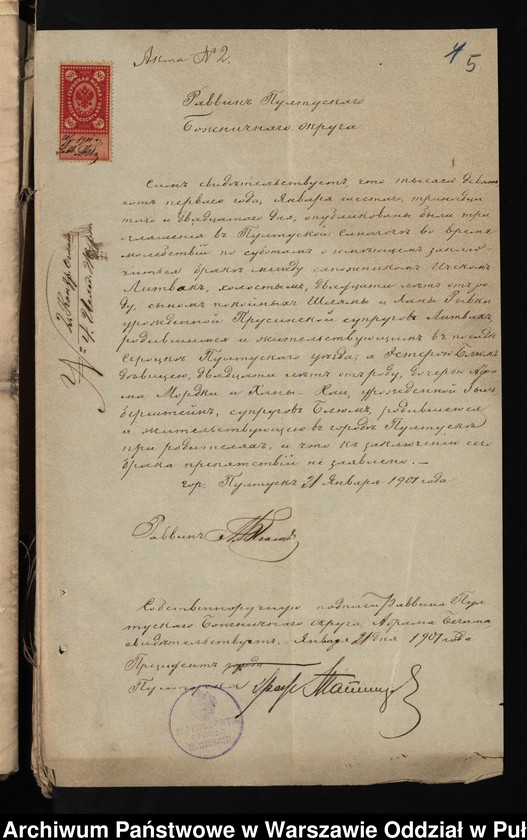 Акта № 2.
4 5
Раввинъ Пултускаго
Божничнаго округа
Симъ свидѣтельствуетъ, что тысяча девять
сотъ перваго года, Января шестого, тринадца
таго и двадцатаго дня, опубликованы были три
глашенія въ Пултуской Синагогѣ во время
молебствій по субботамъ о имѣющемъ заклю
читься бракѣ между сапожникомъ Ицкомъ
Литвакъ, холостымъ, двадцати лѣтъ отъ ро
ду, сыномъ покойныхъ Шлямы и Ханы Рывки
урожденной Прусинской супруговъ Литвакъ,
родившимся и жительствующимъ въ посадѣ
Сероцкъ Пултускаго уѣзда; а Эстерою Блюмъ
дѣвицею, двадцати лѣтъ отъ роду, дочерью
Мордки и Ханы-Хаи, урожденной
берштейнъ, супруговъ Блюмъ, родившеюся
и жительствующею въ городѣ Пултускѣ
при родителяхъ, и что къ заключенію сего
брака препятствій не заявлено. —
гор. Пултускъ 21 Января 1901 года
Раввинъ
Собственноручную подпись Раввина Пул
тускаго Божничнаго округа, Абрама
свидѣтельствуетъ. Января 21 дня 1901 года
Президентъ города
Пултуска
Archiwum Państwowe w Warszawie Oddział w Puł